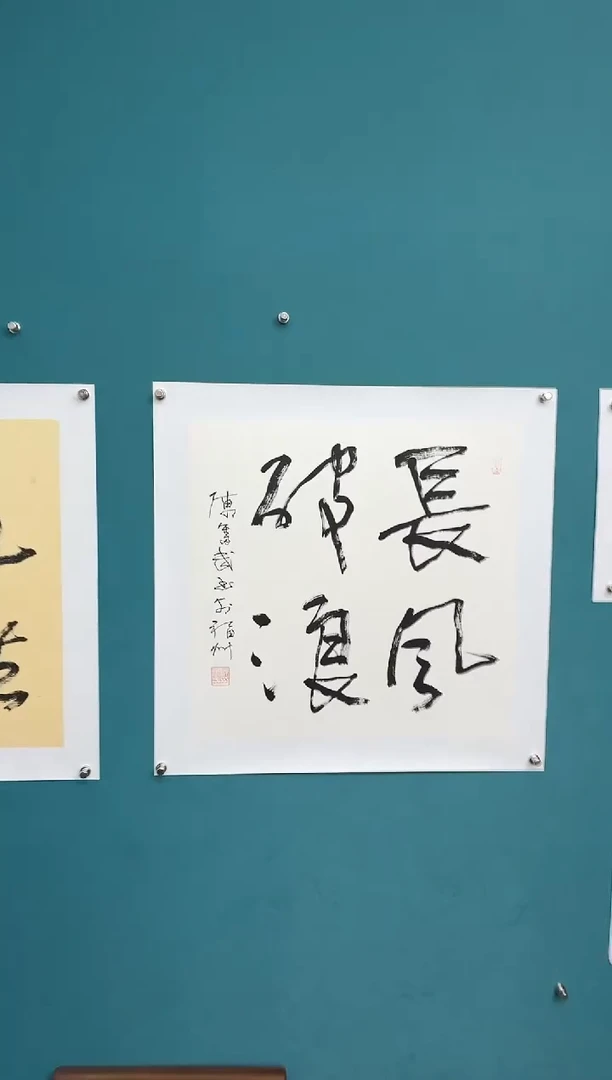 長風
破浪
陳奮武書於福州